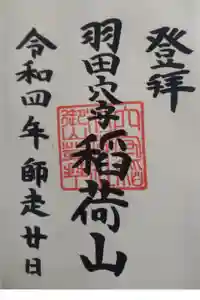 登拝
羽田穴守稲荷山
令和四年師走廿日